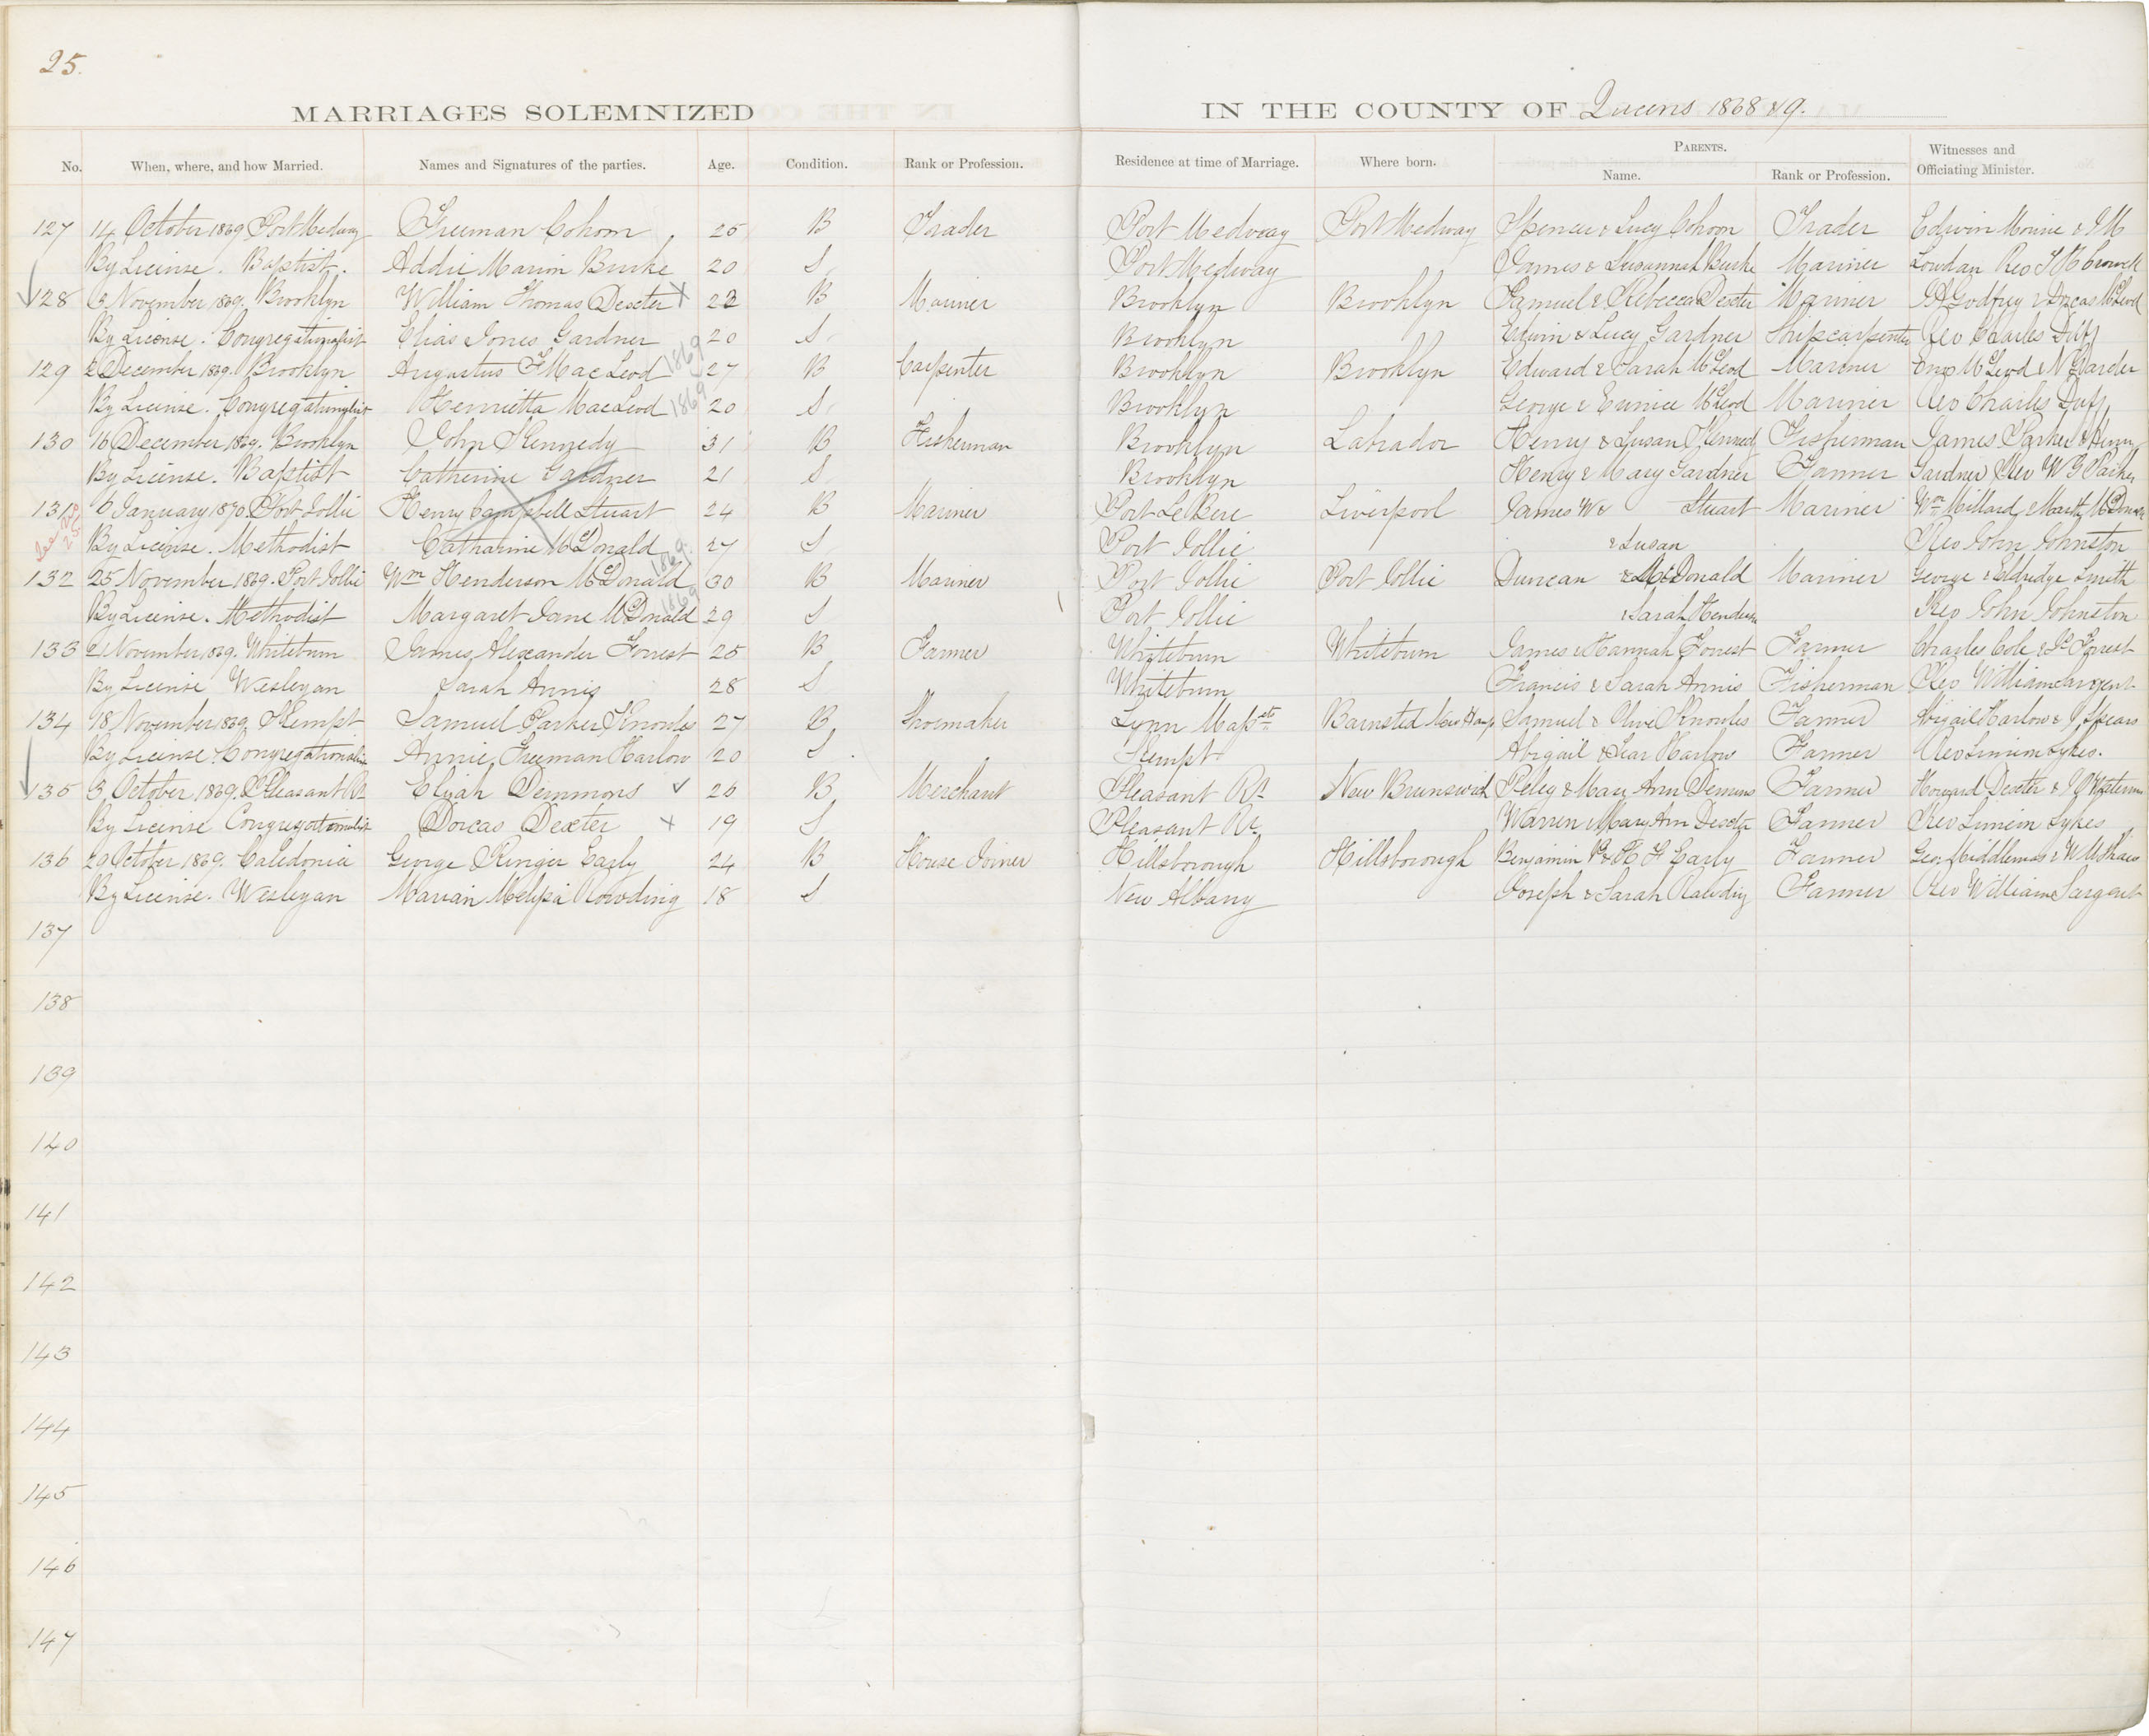 25.
MARRIAGES SOLEMNIZED IN THE COUNTY OF Queens 1868 & 9.
No. When, where, and how Married. Names and Signatures of the parties. Age. Condition. Rank or Profession. Residence at time of Marriage. Where born. PARENTS. Name. Rank or Profession. Witnesses and Officiating Minister.
127 14 October 1869 Port Medway Freeman Cohoon 25 B Trader Port Medway Port Medway Spencer & Lucy Cohoon Trader Edwin & M
By License. Baptist. Addie Marion Burke 20 S Port Medway James & Susannah Burke Mariner Lowdan Rev
128 3 November 1869. Brooklyn William Thomas Dexter X 22 B Mariner Brooklyn Brooklyn Samuel & Rebecca Dexter Mariner Godfrey & Dorcas McLeod
By License. Congregationalist Elias Jones Gardner 20 S Brooklyn Edwin & Lucy Gardner Shipcarpenter Rev Charles Duff
129 2 December 1869. Brooklyn Augustus F MacLeod 1869 27 B Carpenter Brooklyn Brooklyn Edward & Sarah McLeod Mariner McLeod & N Garder
By License. Congregationalist Henrietta MacLeod 1869 20 S Brooklyn George & Eunice McLeod Mariner Rev Charles Duff
130 16 December 1869. Brooklyn John Kennedy 31 B Fisherman Brooklyn Labrador Henry & Susan Kennedy Fisherman James Parker & Henry
By License. Baptist Catherine Gardner 21 S Brooklyn Henry & Mary Gardner Farmer Gardner Rev W G Parker
131 6 January 1870 Port Jollie Henry Campbell Stuart 24 B Mariner Port Le Bere Liverpool James W & Stuart Mariner Wm Millard & McDonald
See No 25 By License. Methodist Catharine McDonald 27 S Port Jollie & Susan Rev John Johnston
132 25 November 1869. Port Jollie Wm Henderson McDonald 1869 30 B Mariner Port Jollie Port Jollie Duncan & McDonald Mariner George & Eldridge Smith
By License. Methodist Margaret Jane McDonald 1869 29 S Port Jollie & Sarah Rev John Johnston
133 2 November 1869. Whiteburn James Alexander Forrest 25 B Farmer Whiteburn Whiteburn James & Hannah Forrest Farmer Charles Cole & Forrest
By License Wesleyan Sarah Annis 28 S Whiteburn Francis & Sarah Annis Fisherman Rev William Sargent
134 18 November 1869. Kempt Samuel Parker Knowles 27 B Shoemaker Lynn Masstts Barnsted New Hamp Samuel & Olive Knowles Farmer Abigail Harlow & J Spears
By License Congregationalist Annie Freeman Harlow 20 S Kempt Abigail & Harlow Farmer Rev Simeon Sykes.
135 3 October 1869. Pleasant Rr Elijah Demmons 26 B Merchant Pleasant Rr New Brunswick Peleg & Mary Ann Demmons Farmer Howard Dexter &
By License Congregationalist Dorcas Dexter X 19 S Pleasant Rr Warren & Mary Ann Dexter Farmer Rev Simeon Sykes
136 20 October 1869. Caledonia George Ringer Early 24 B House Joiner Hillsborough Hillsborough Benjamin Early Farmer Geo. Middlemas &
By License. Wesleyan Marian Melissa Rowding 18 S New Albany Joseph & Sarah Rawding Farmer Rev William Sargent
137
138
139
140
141
142
143
144
145
146
147